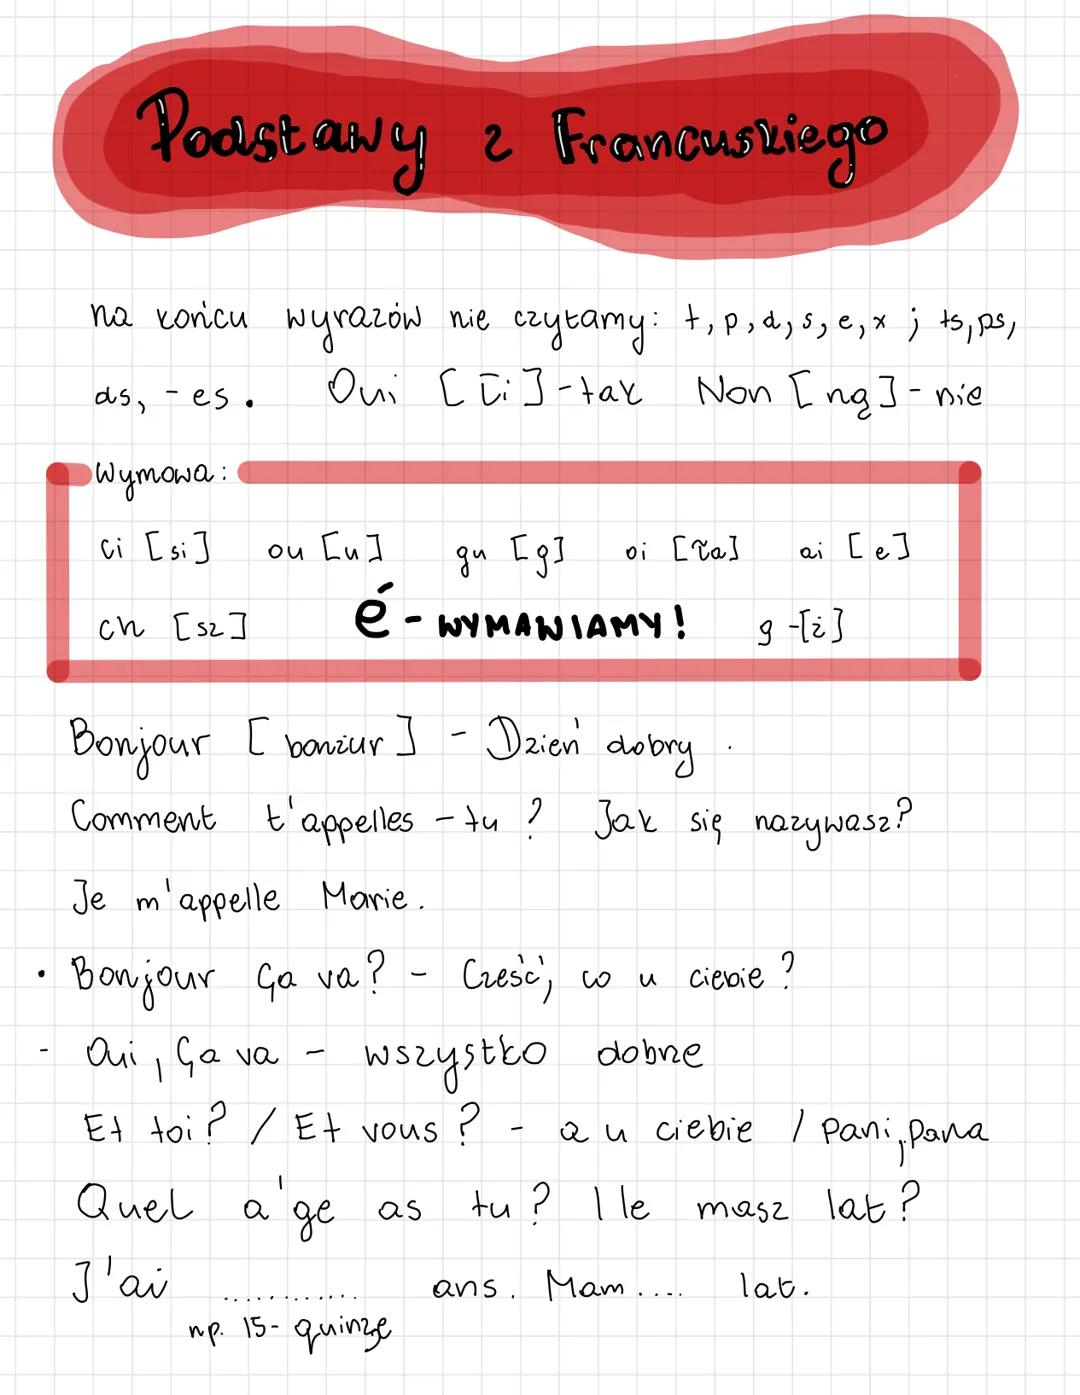 Podstawy z Francuskiego
na końcu wyrazów nie czytamy: t, p, d, s, e, x ; ts, ps,
ds, - es. Oui [łi] - tak Non [ną] - nie
Wymowa:
ci [si] ou [u] gu [g] oi [ła] ai [e]
ch [sz] é - WYMAWIAMY! g - [ż]
Bonjour [bonżur] - Dzień dobry.
Comment t'appelles - tu ? Jak się nazywasz?
Je m'appelle Marie.
• Bonjour Ça va? - Cześć, co u ciebie ?
- Oui, Ça va - wszystko dobrze
Et toi? / Et vous ? - a u ciebie / pani, pana
Quel a'ge as tu ? Ile masz lat ?
J'ai ............ ans. Mam .... lat.
np. 15 - quinze